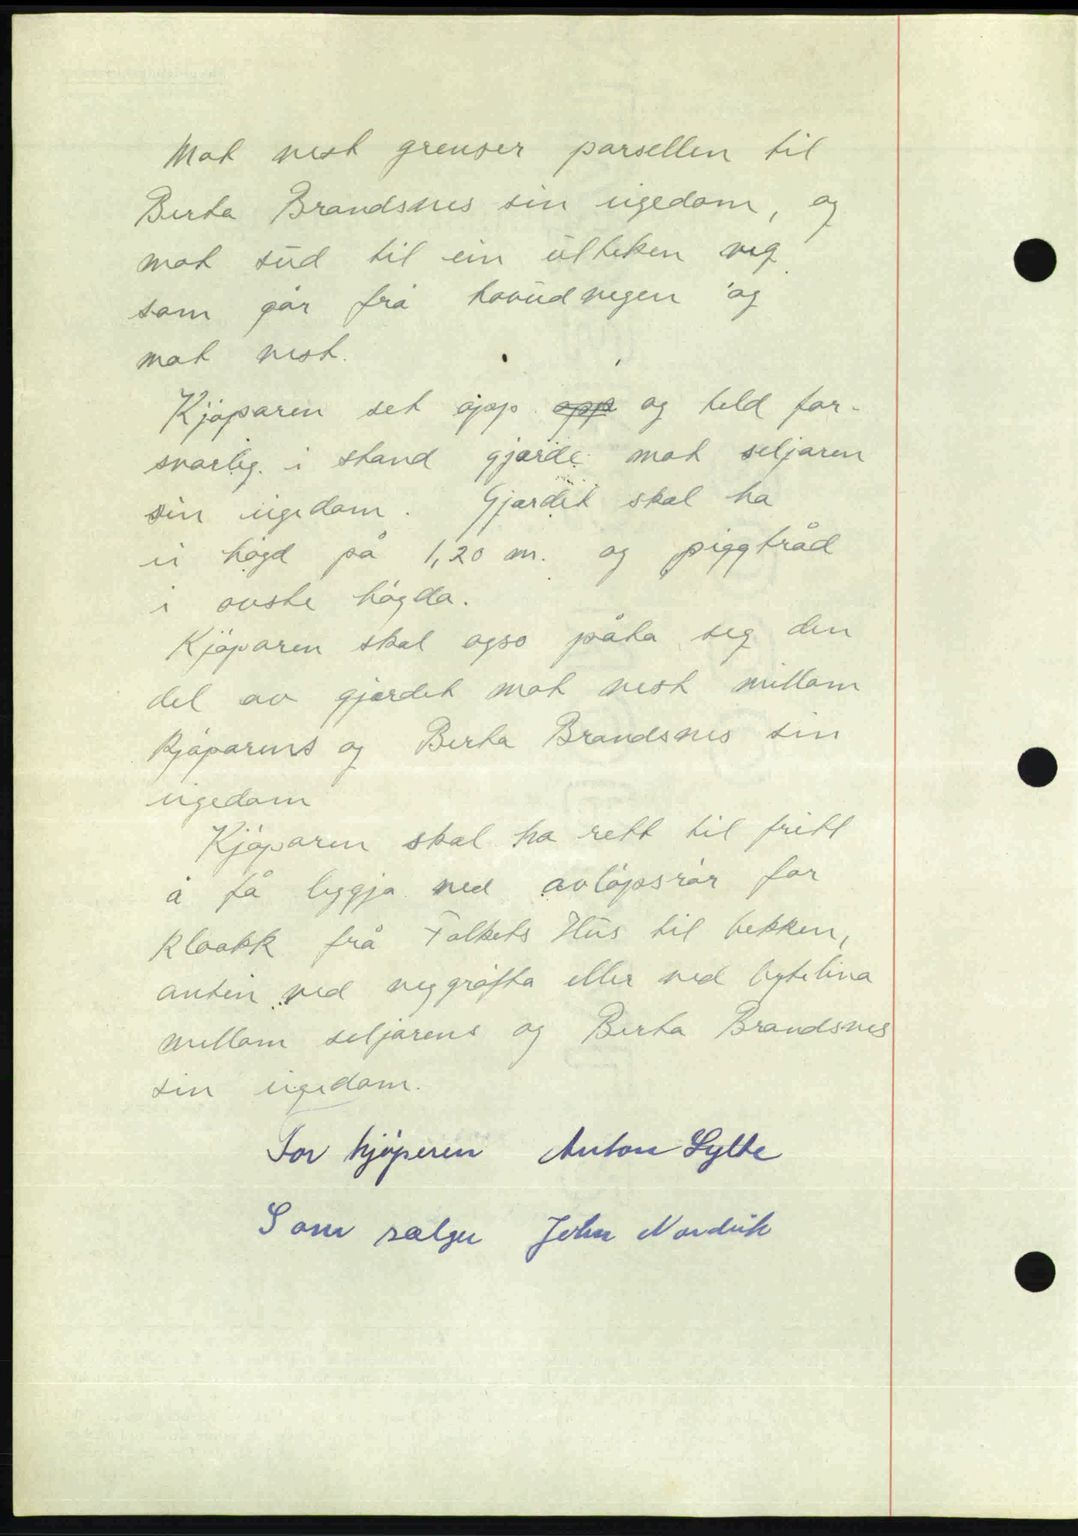 Mot vest grenser parsellen til
Berta Brandsnes sin eigedom, og
mot süd til ein ütteken veg
som går frå hovüdvegen og
mot vest.
Kjöparen set opp opp og held for-
svarleg i stand gjærde mot seljaren
sin eigedom. Gjærdet skal ha
ei högd på 1,20 m. og piggtråd
i övste högda.
Kjöparen skal ogso påta seg den
del av gjerdet mot vest millom
Kjöparens og Berta Brandsnes sin
eigedom
Kjöparen skal ha rett til fritt
å få leggja ned avlöpsrör for
kloakk frå Folkets Hüs til bekken,
anten ved veggröfta eller ved bytelina
millom seljarens og Berta Brandsnes
sin eigedom.
For kjöperen Anton Sylte
Som sælger John Nordvik